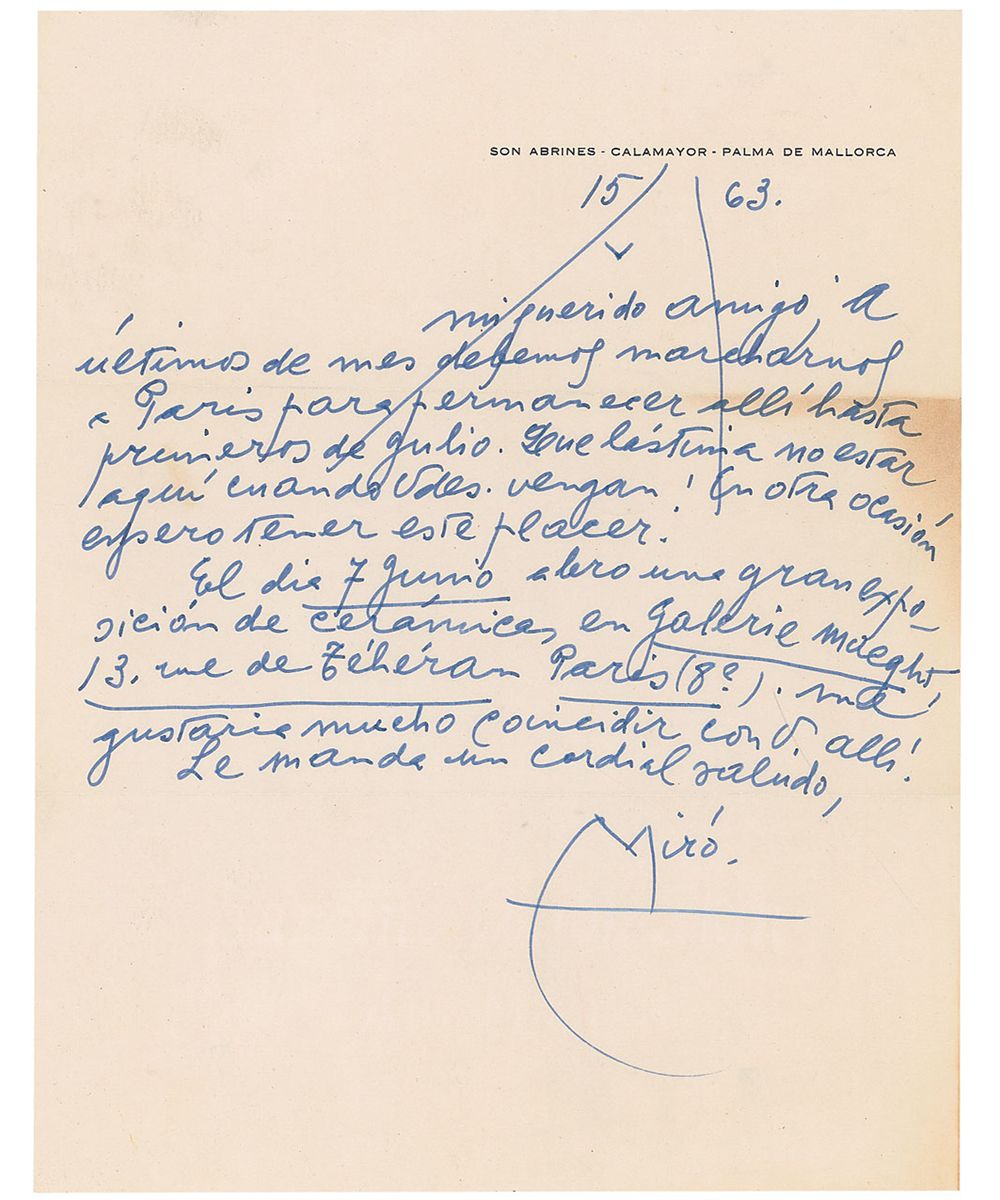 SON ABRINES - CALAMAYOR - PALMA DE MALLORCA
15 / V / 63.
mi querido amigo, A
últimos de mes debemos marcharnos
a Paris para permanecer allí hasta
primeros de Julio. Que lástima no estar
aquí cuando Vdes. vengan! En otra ocasión
espero tener este placer.
El dia 7 Junio abro una gran expo-
sición de cerámicas en Galerie Maeght,
13. rue de Téhéran Paris (8e). me
gustaria mucho coincidir con V. allí.
Le manda un cordial saludo,
Miró.